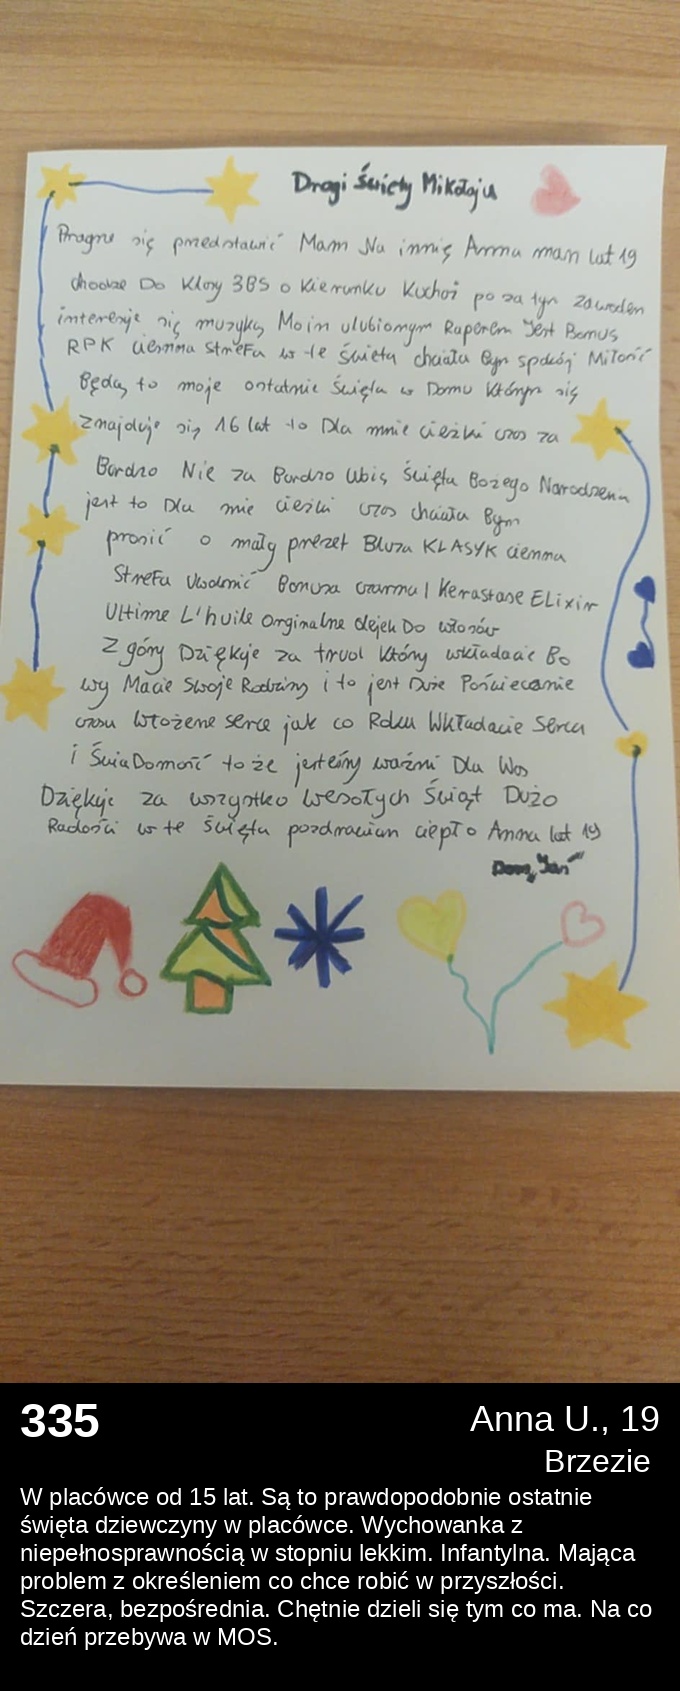 Drogi Święty Mikołaju
Pragnę się przedstawić Mam Na imnię Anna mam lat 19
chodze Do Klasy 3BS o Kierunku Kucharz po za tym zawodem
interesuje się muzyką Moim ulubionym Raperem Jest Bonus
RPK ciemna strefa w te święta chciała Bym spędzić Miłość
Będą to moje ostatnie święta w Domu Którym się
znajduje się 16 lat to Dla mnie ciężki czas za
Bardzo Nie za Bardzo lubię święta Bożego Narodzenia
jest to Dla mnie ciężki czas chciała Bym
prosić o mały prezet Bluza KLASYK ciemna
strefa Bonusa czarna 1 Kerastase ELixir
Ultime L'huile orginalne olejek Do włosów
Z góry Dziękuje za trud Który wkładacie Bo
wy Macie swoje Rodziny i to jest Duże Poświecenie
czasu włożene serce jak co Roku Wkładacie serca
i świaDomość to że jesteśmy ważni Dla Was
Dziękuje za wszystko wesołych świąt Dużo
Radości w te święta pozdrawiam ciepło Anna lat 19
Dom „Jaś”
335
Anna U., 19
Brzezie
W placówce od 15 lat. Są to prawdopodobnie ostatnie
święta dziewczyny w placówce. Wychowanka z
niepełnosprawnością w stopniu lekkim. Infantylna. Mająca
problem z określeniem co chce robić w przyszłości.
Szczera, bezpośrednia. Chętnie dzieli się tym co ma. Na co
dzień przebywa w MOS.